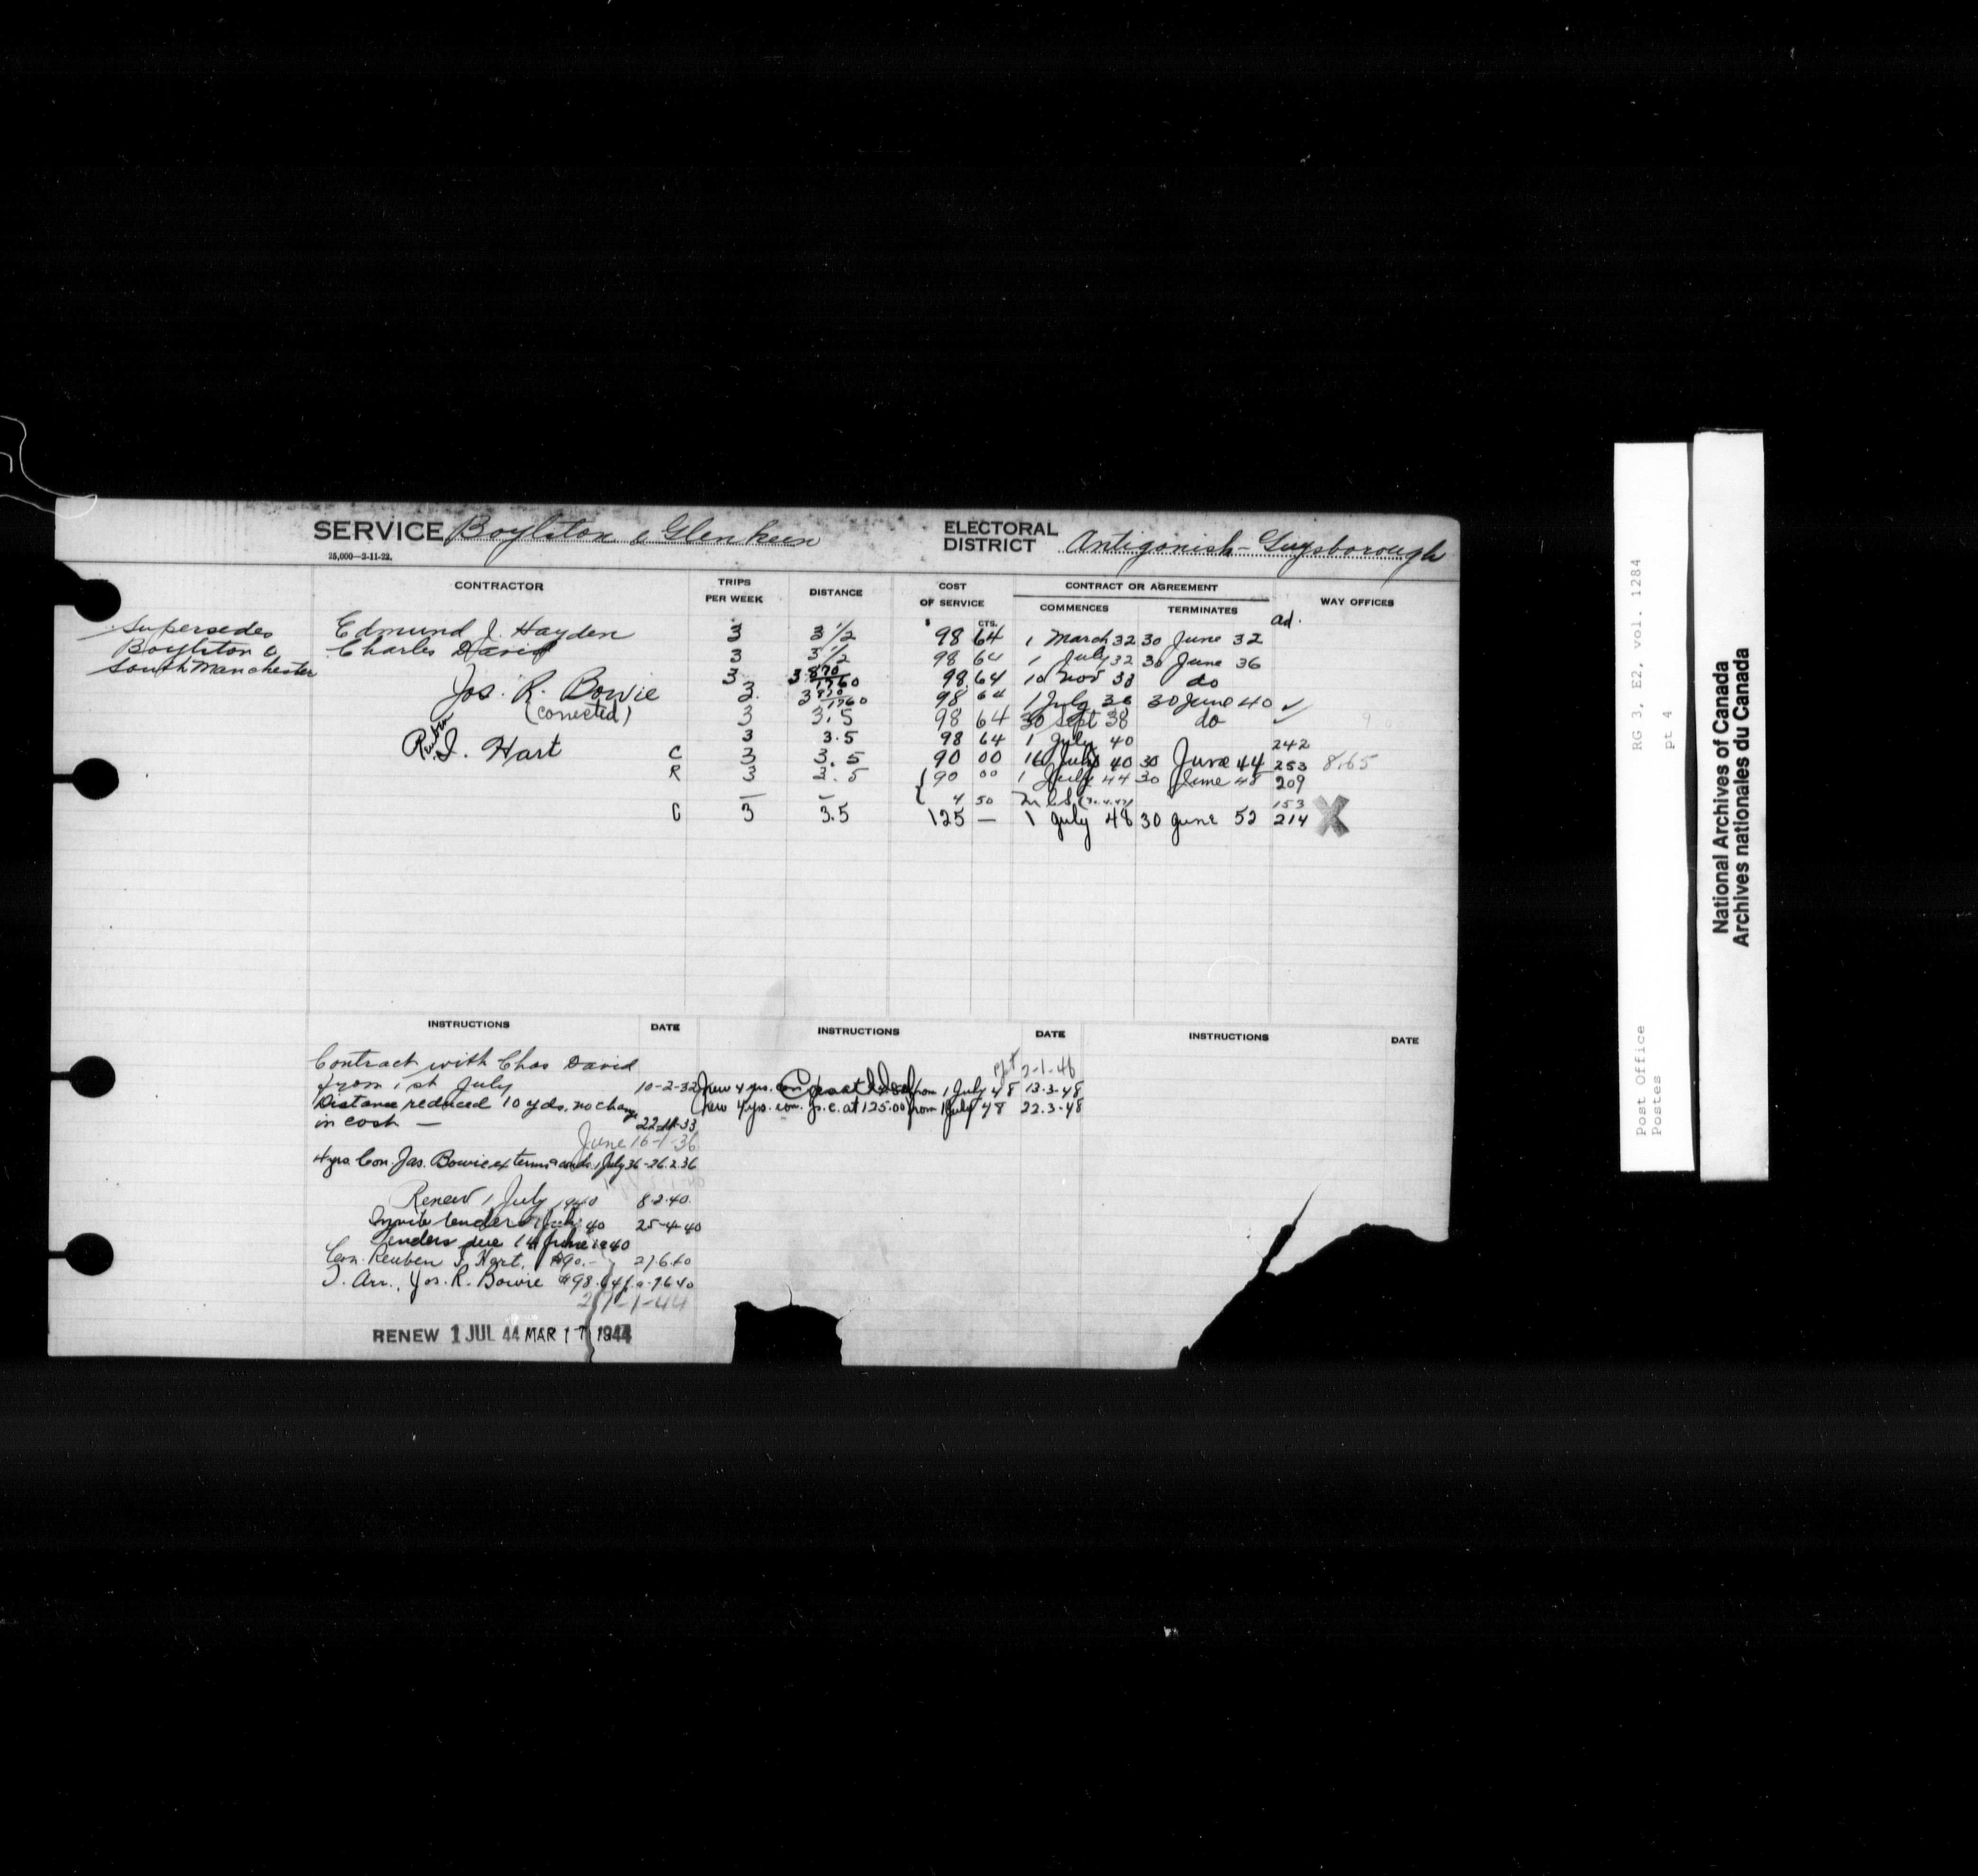 SERVICE Boylston & Glenkeen
ELECTORAL DISTRICT Antigonish-Guysborough
25,000—2-11-22.
CONTRACTOR TRIPS PER WEEK DISTANCE COST OF SERVICE CONTRACT OR AGREEMENT COMMENCES TERMINATES WAY OFFICES
$ CTS. ad.
Supersedes Edmund J. Hayden 3 3 1/2 98 64 1 March 32 30 June 32
Boylston & Charles David 3 3 1/2 98 64 1 July 32 30 June 36
South Manchester 3 3 870/1760 98 64 10 Nov 33 do
Jos. R. Bowie 3 3 870/1760 98 64 1 July 36 30 June 40 ✓
(corrected) 3 3.5 98 64 30 Sept 38 do ✓
3 3.5 98 64 1 July 40 242
Reuben
R. I. Hart C 3 3.5 90 00 16 July 40 30 June 44 253 8.65
R 3 3.5 90 00 1 July 44 30 June 48 209
— — 4 50 153
C 3 3.5 125 — 1 July 48 30 June 52 214 X
INSTRUCTIONS DATE INSTRUCTIONS DATE INSTRUCTIONS DATE
Contract with Chas David
from 1st July 10-2-32
Distance reduced 10 yds. no change
in cost — 22-11-33
June 16-1-36
4 yrs. Con. Jas. Bowie ex terms & conds. 1 July 36 - 26.2.36
Renew 1 July 1940 8.2.40.
Invite tenders 1 July 40 25-4-40
Tenders due 14 June 1940
Con. Reuben I. Hart, $90.— 27.6.40
T. Arr., Jos. R. Bowie $98.64
RENEW 1 JUL 44 MAR 17 1944
2-1-48
New 4 yrs. con from 1 July 48 13-3-48
New 4 yrs. con. at 125.00 from 1 July 48 22.3-48
Post Office RG 3, E2, vol. 1284
Postes pt 4
National Archives of Canada
Archives nationales du Canada